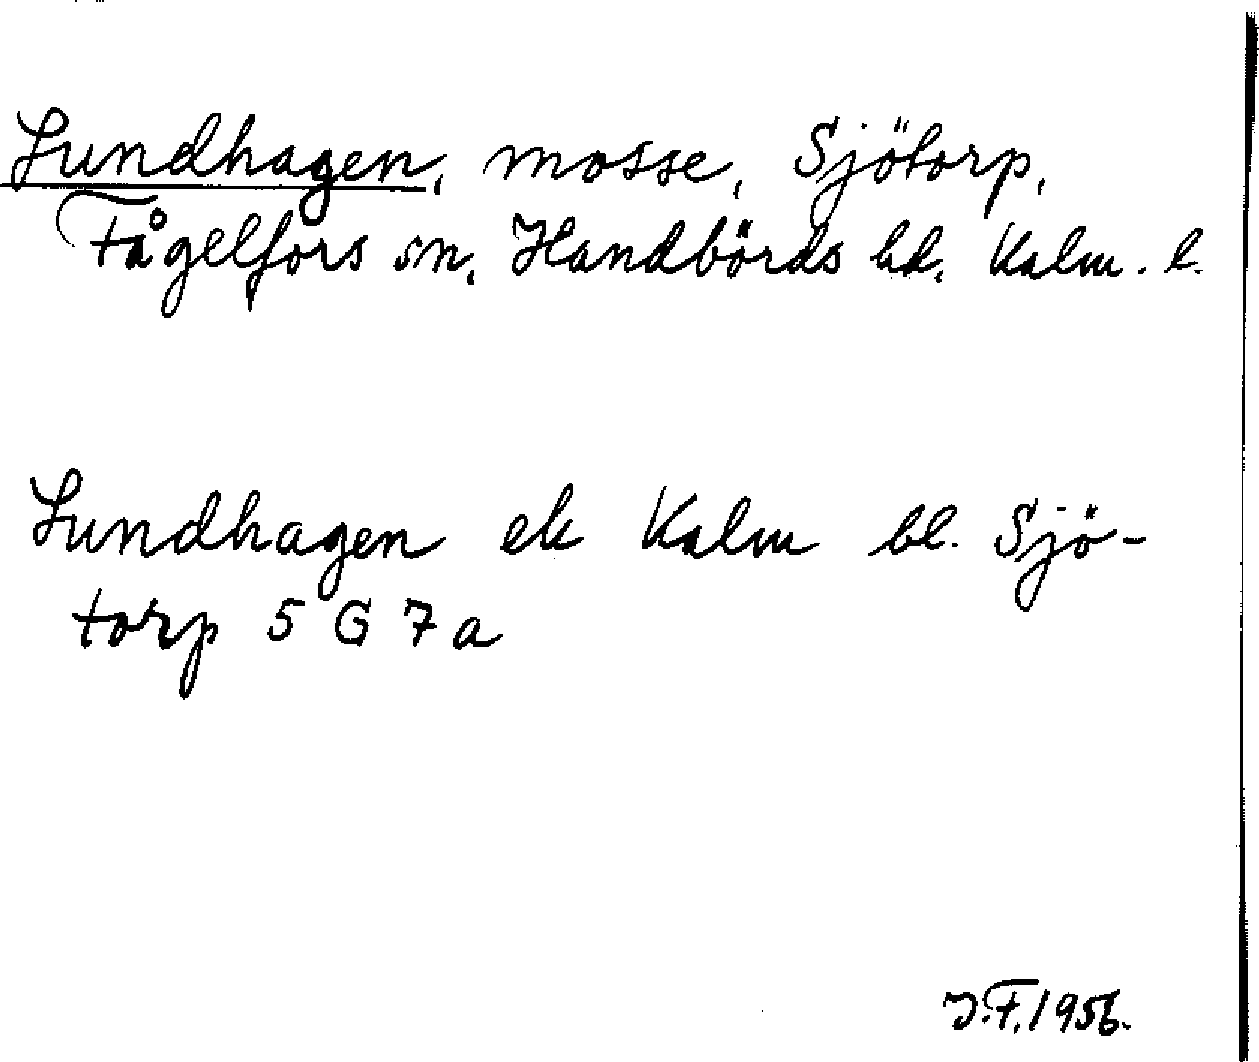 Lundhagen, mosse, Sjötorp,
Fågelfors sn, Handbörds hd, Kalm. l.
Lundhagen ek Kalm bl. Sjö-
torp 5 G 7 a
J.F. 1956.